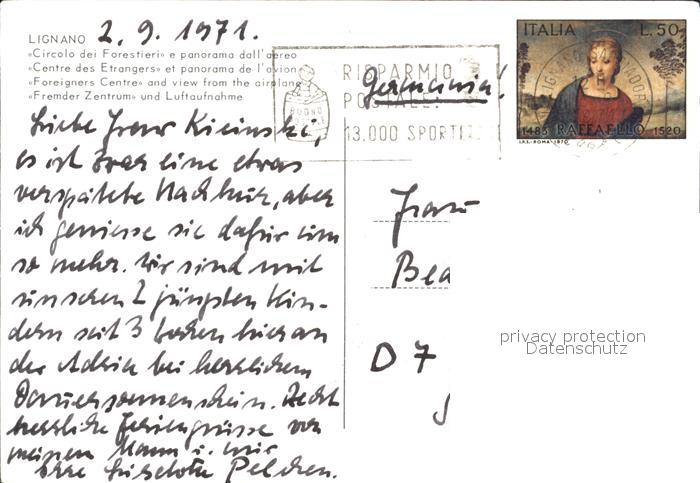 LIGNANO 2.9.1971.
«Circolo dei Forestieri» e panorama dall'aereo
«Centre des Etrangers» et panorama de l'avion
«Foreigners Centre» and view from the airplane
«Fremder Zentrum» und Luftaufnahme
Liebe Frau
es ist zwar eine etwas
verspätete Nachkur, aber
ich geniesse sie dafür um
so mehr. Wir sind mit
unseren 2 jüngsten Kin-
dern seit 3 Wochen hier an
der Adria bei herrlichem
Dauersonnenschein. Recht
herzliche Feriengrüsse von
meinem Mann u. mir
Ihre Liselotte Pelchen.
ITALIA L.50
1483 RAFFAELLO 1520
I.P.S.-ROMA-1970
RISPARMIO
POSTALE:
13.000 SPORTELLI
BUONO
Germania!
Frau
Bea
D 7
privacy protection
Datenschutz